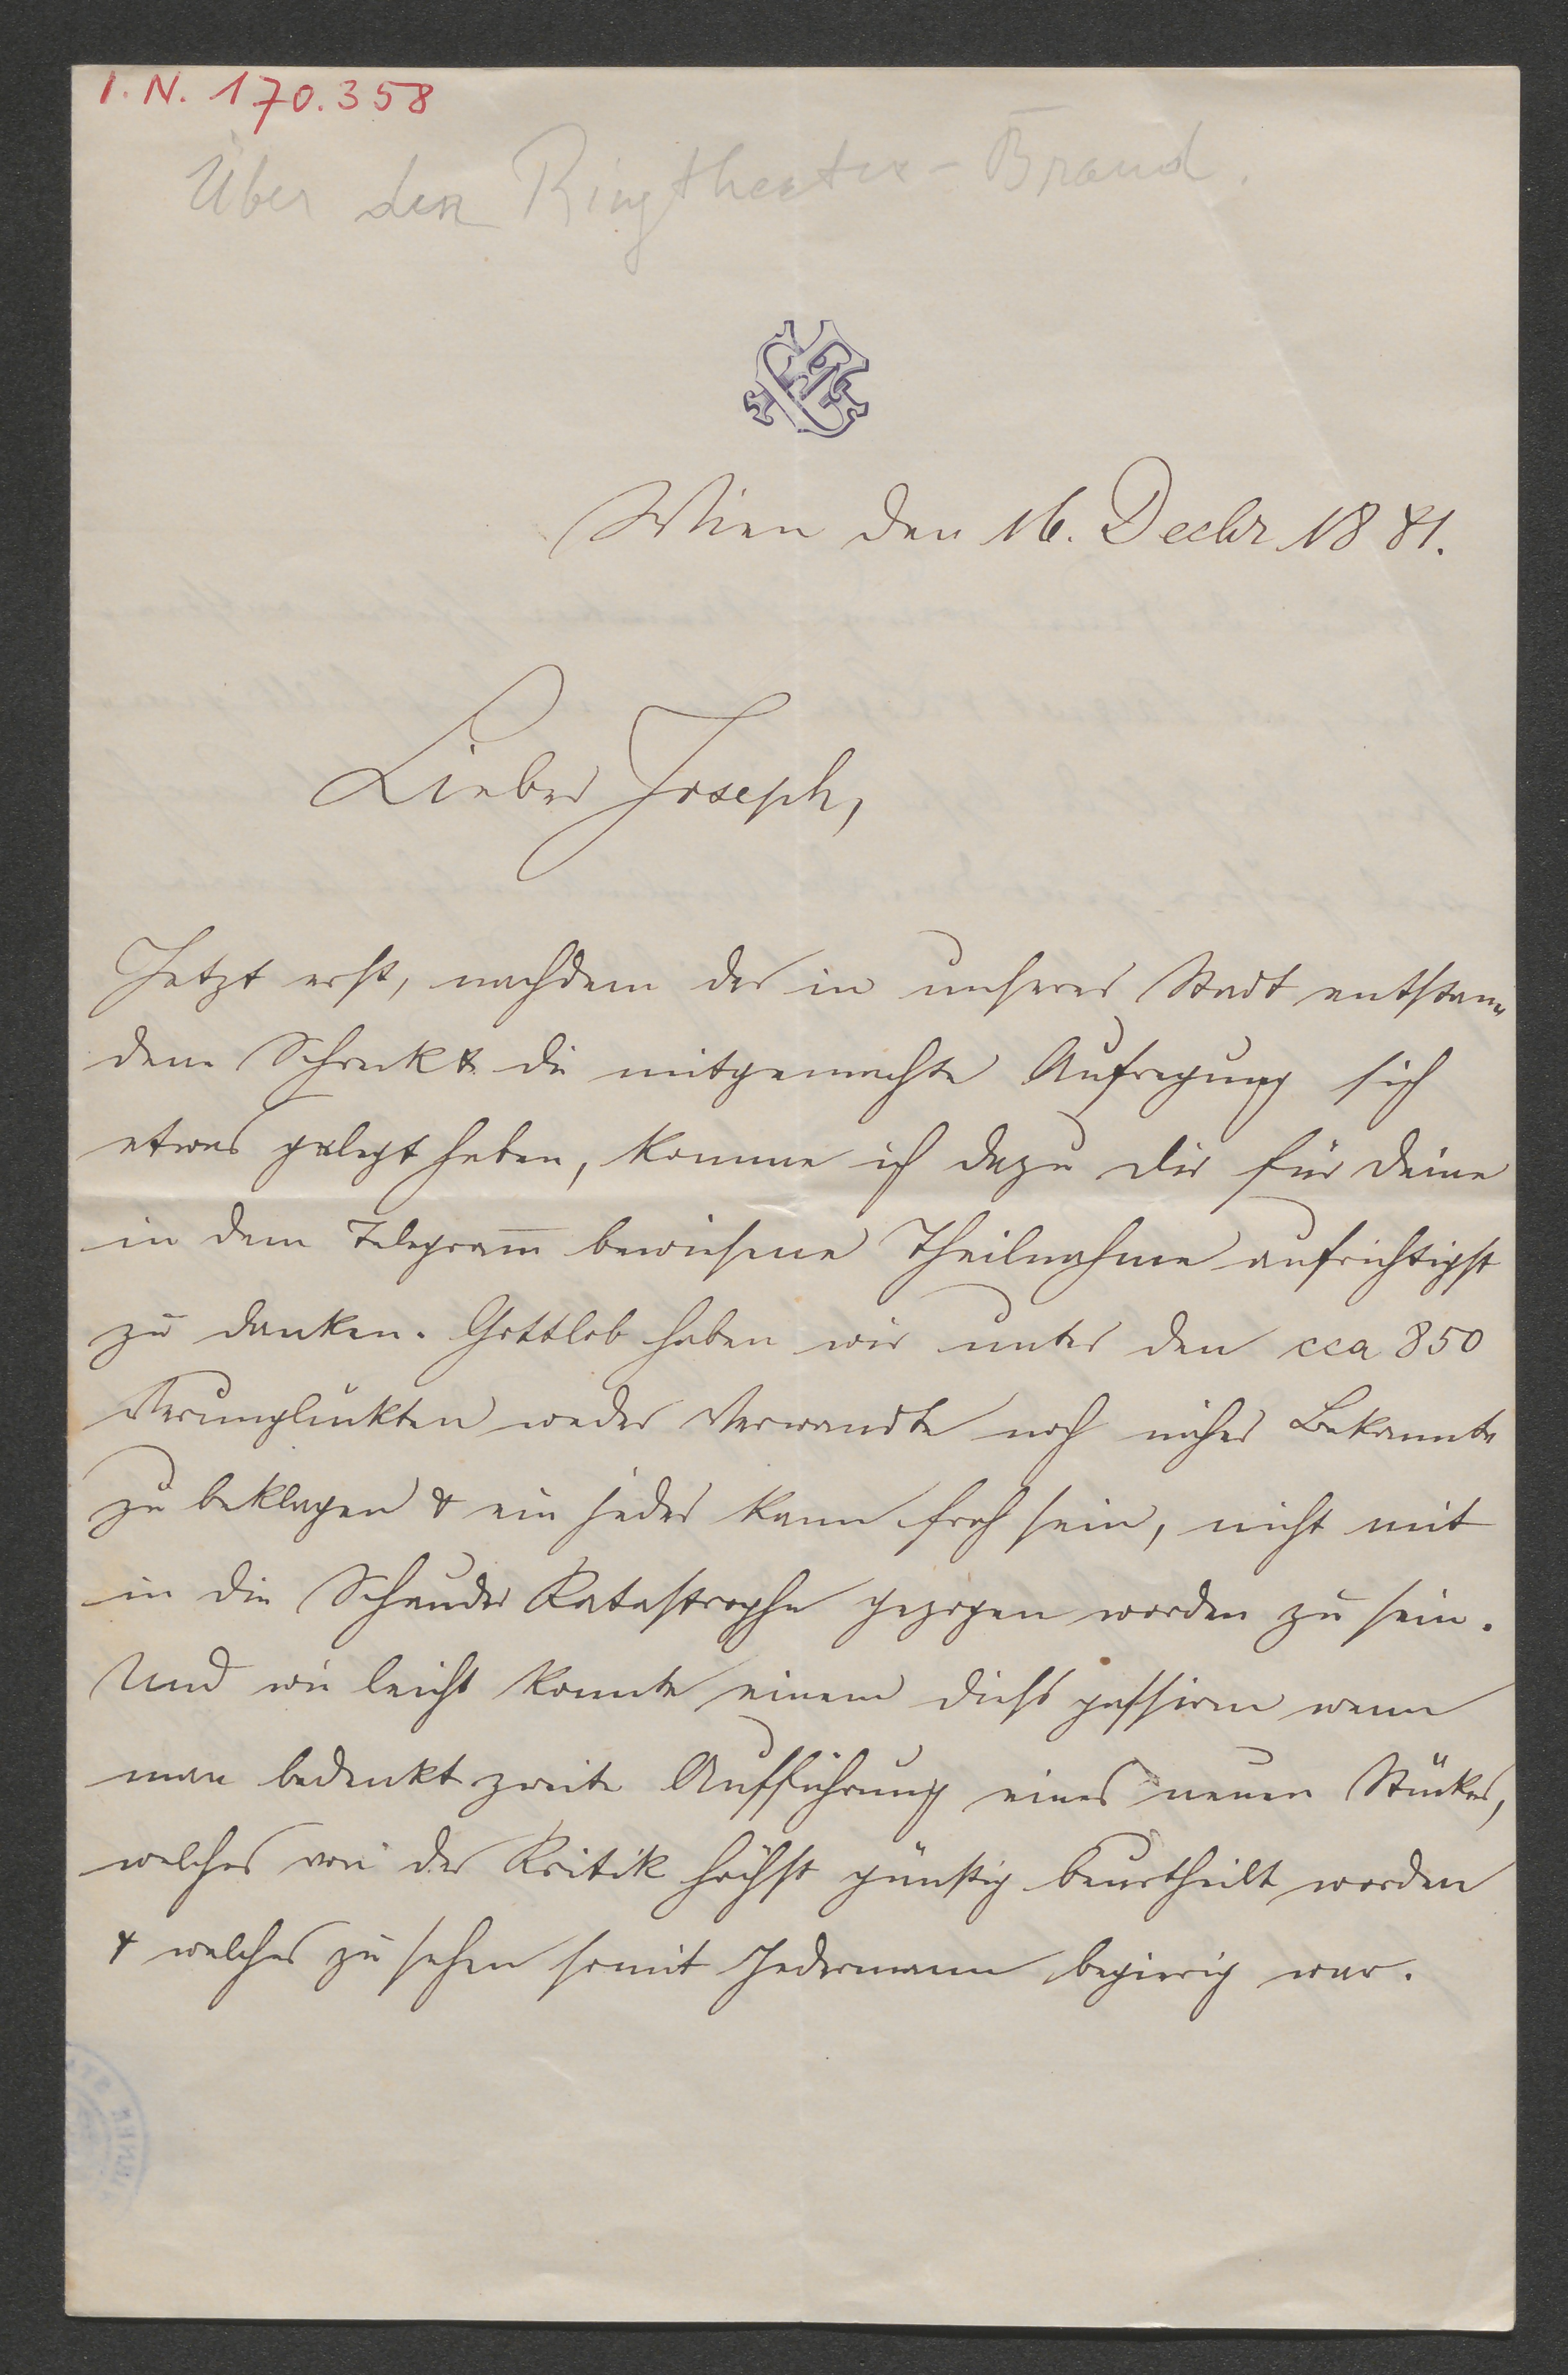 I. N. 170.358
Über den Ringtheater-Brand.
Wien den 16. Decbr 1881.
Lieber Joseph,
Jetzt erst, nachdem der in unserer Stadt entstan-
dene Schreck & die mitgemachte Aufregung sich
etwas gelegt haben, komme ich dazu dir für deine
in dem Telegram̅ bewiesene Theilnahme aufrichtigst
zu danken. Gottlob haben wir unter den cca 850
Verunglückten weder Verwandte noch näher Bekannte
zu beklagen & ein jeder kann froh sein, nicht mit
in die Schauder Katastrophe gezogen worden zu sein.
Und wie leicht konnte einem dieß passiren wenn
man bedenkt zweite Aufführung eines neuen Stückes,
welches von der Kritik höchst günstig beurtheilt worden
& welches zu sehen somit Jedermann begierig war.